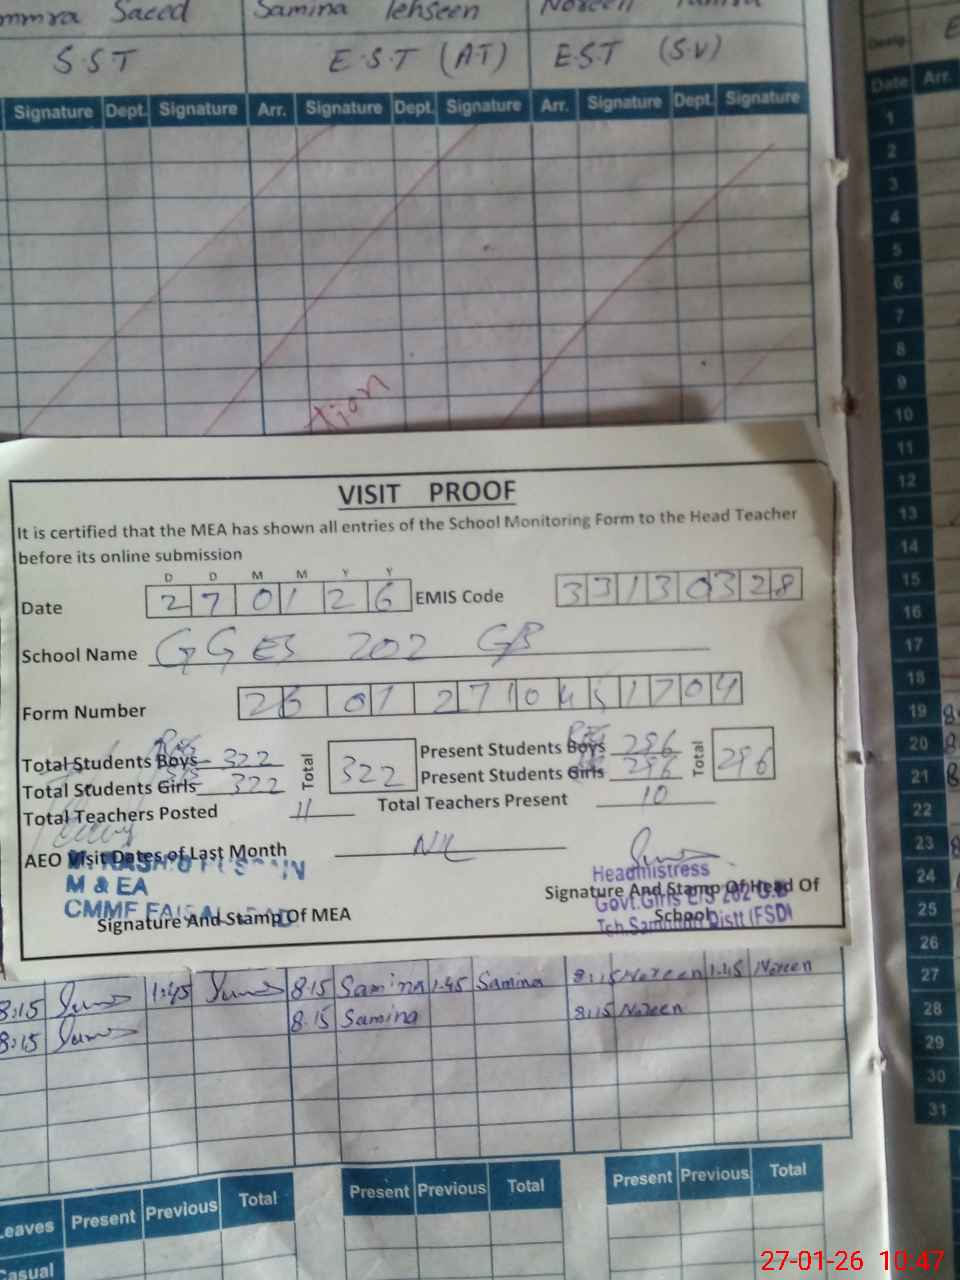 Saeed Samina Tehseen Noreen
S.S.T E.S.T (AT) E.S.T (S.V)
Signature Dept. Signature Arr. Signature Dept. Signature Arr. Signature Dept. Signature
Date Arr.
1
2
3
4
5
6
7
8
9
10
11
12
13
14
15
16
17
18
19
20
21
22
23
24
25
26
27
28
29
30
31
VISIT PROOF
It is certified that the MEA has shown all entries of the School Monitoring Form to the Head Teacher
before its online submission
D D M M Y Y
Date 2 7 0 1 2 6 EMIS Code 3 3 1 3 0 3 2 8
School Name GGES 202 GB
Form Number
Total Students Boys 322 Total 322 Present Students Boys 296 Total 296
Total Students Girls 322 Present Students Girls 296
Total Teachers Posted 11 Total Teachers Present 10
AEO Visit Dates of Last Month Nil
M & EA Headmistress
CMMF Signature And Stamp Of Head Of
Signature And Stamp Of MEA School
8:15 1:45 8:15 Samina 1:45 Samina 8:15 Noreen 1:45 Noreen
8:15 8:15 Samina 8:15 Noreen
Leaves Present Previous Total Present Previous Total Present Previous Total
Casual
27-01-26 10:47